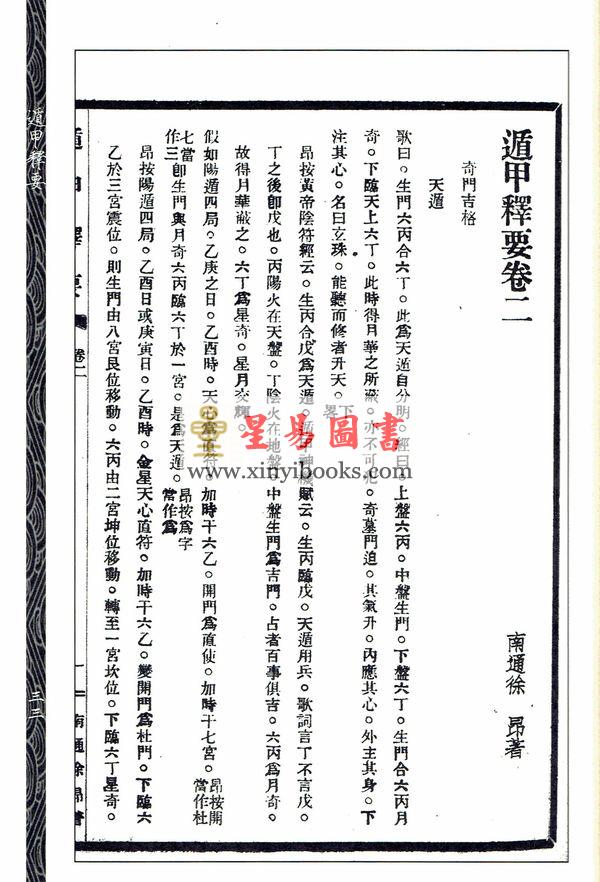 遁甲釋要卷二
南通徐昂著
奇門吉格
天遁
歌曰。生門六丙合六丁。此爲天遁自分明。經曰。上盤六丙。中盤生門。下盤六丁。生門合六丙月
奇。下臨天上六丁。此時得月華之所蔽。亦不可犯。奇墓門迫。其氣升。內應其心。外主其身。下
注其心。名曰玄珠。能聽而修者升天。下畧
昂按黃帝陰符經云。生丙合戊爲天遁。遁甲神機賦云。生丙臨戊。天遁用兵。歌詞言丁不言戊。
丁之後卽戊也。丙陽火在天盤。丁陰火在地盤。中盤生門爲吉門。占者百事俱吉。六丙爲月奇。
故得月華蔽之。六丁爲星奇。星月交輝。
假如陽遁四局。乙庚之日。乙酉時。天心爲直符。加時干六乙。開門爲直使。加時干七宮。昂按開當作杜
七當作三卽生門與月奇六丙臨六丁於一宮。是爲天遁。昂按爲字當作爲
昂按陽遁四局。乙酉日或庚寅日。乙酉時。金星天心直符。加時干六乙。變開門爲杜門。下臨六
乙於三宮震位。則生門由八宮艮位移動。六丙由二宮坤位移動。轉至一宮坎位。下臨六丁星奇。
遁甲釋要
卷二
一
南通徐昂著
遁甲釋要
三三
星易圖書
www.xinyibooks.com